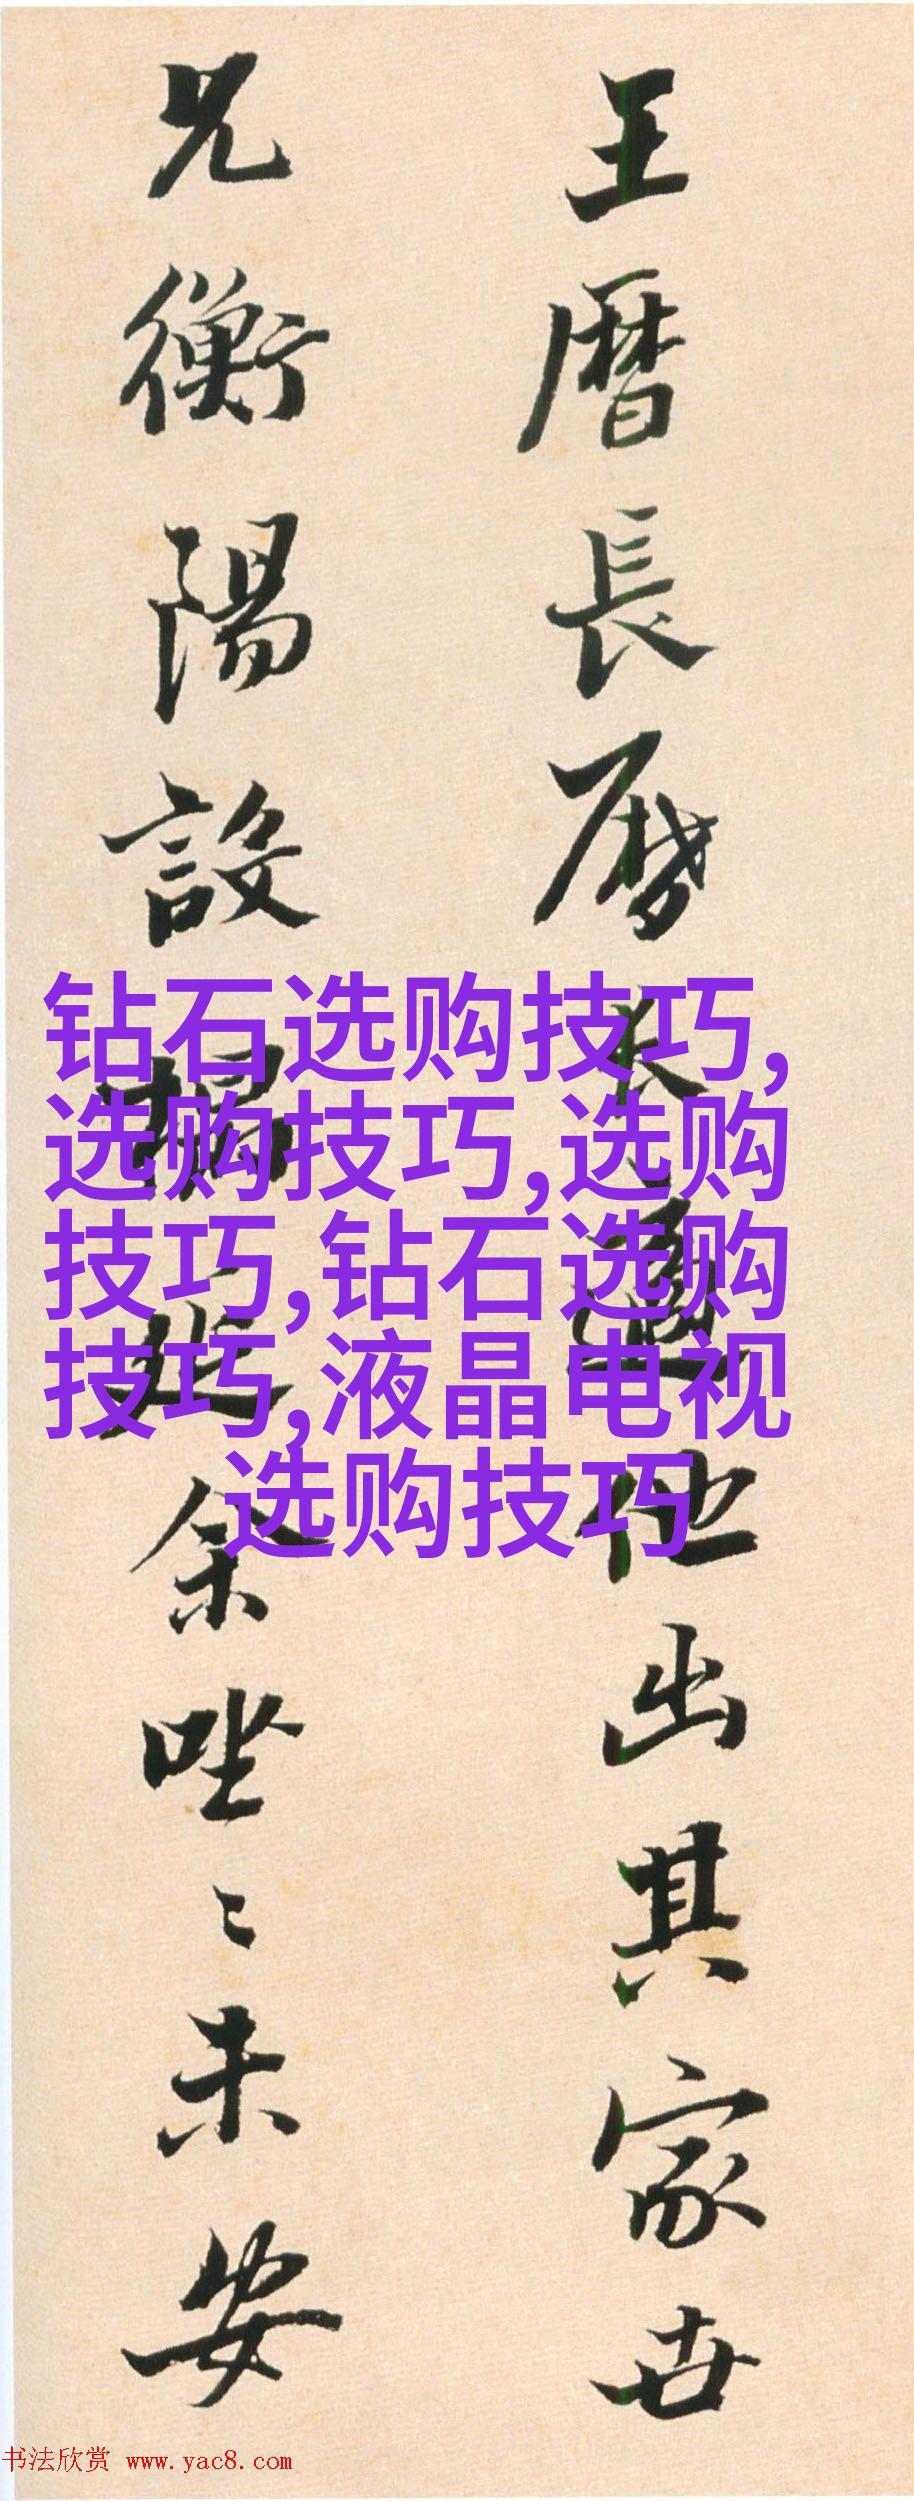 王曆長曆
長適他出其家女
兄衡陽設
榻延余坐〻未安
钻石选购技巧,
选购技巧,选购
技巧,钻石选购
技巧,液晶电视
选购技巧
书法欣赏 www.yac8.com